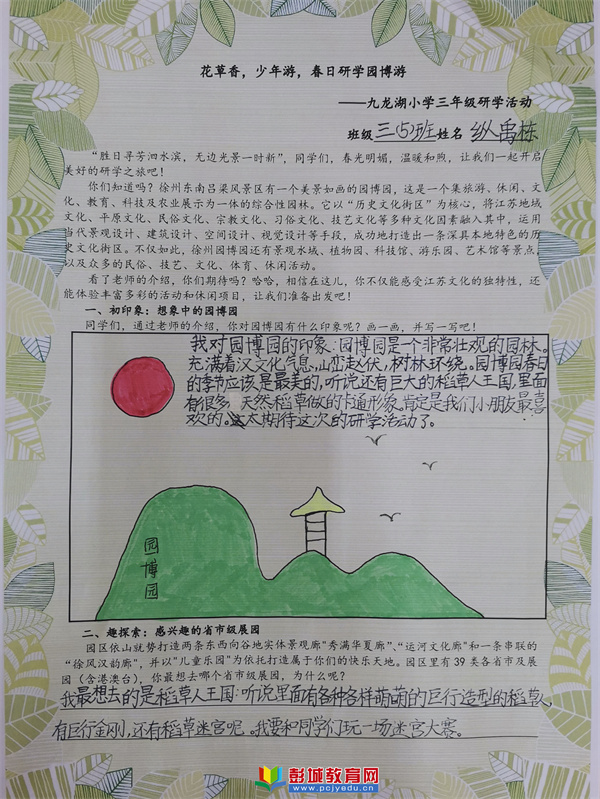 花草香，少年游，春日研学园博游
——九龙湖小学三年级研学活动
班级 三(5)班 姓名 纵禹栋
“胜日寻芳泗水滨，无边光景一时新”，同学们，春光明媚，温暖和煦，让我们一起开启
美好的研学之旅吧！
你们知道吗？徐州东南吕梁风景区有一个美景如画的园博园，这是一个集旅游、休闲、文
化、教育、科技及农业展示为一体的综合性园林。它以“历史文化街区”为核心，将江苏地域
文化、平原文化、民俗文化、宗教文化、习俗文化、技艺文化等多种文化因素融入其中，运用
当代景观设计、建筑设计、空间设计、视觉设计等手段，成功地打造出一条深具本地特色的历
史文化街区。不仅如此，徐州园博园还有景观水域、植物园、科技馆、游乐园、艺术馆等景点，
以及众多的民俗、技艺、文化、体育、休闲活动。
看了老师的介绍，你们期待吗？哈哈，相信在这儿，你不仅能感受江苏文化的独特性，还
能体验丰富多彩的活动和休闲项目，让我们准备出发吧！
一、初印象：想象中的园博园
同学们，通过老师的介绍，你对园博园有什么印象呢？画一画，并写一写吧！
我对园博园的印象：园博园是一个非常壮观的园林。
充满着汉文化气息，山峦起伏，树林环绕。园博园春日
的季节应该是最美的，听说还有巨大的稻草人王国，里面
有很多，天然稻草做的卡通形象。肯定是我们小朋友最喜
欢的。太期待这次的研学活动了。
园
博
园
二、趣探索：感兴趣的省市级展园
园区依山就势打造两条东西向谷地实体景观廊"秀满华夏廊"、“运河文化廊”和一条串联的
“徐风汉韵廊”，并以"儿童乐园"为依托打造属于你们的快乐天地。园区里有 39 类各省市及展
园（含港澳台），你最想去哪个省市级展园，为什么呢？
我最想去的是稻草人王国：听说里面有各种各样萌萌的巨行造型的稻草人，
有巨行金刚，还有稻草迷宫呢。我要和同学们玩一场迷宫大赛。
彭城教育网
www.pcjyedu.cn